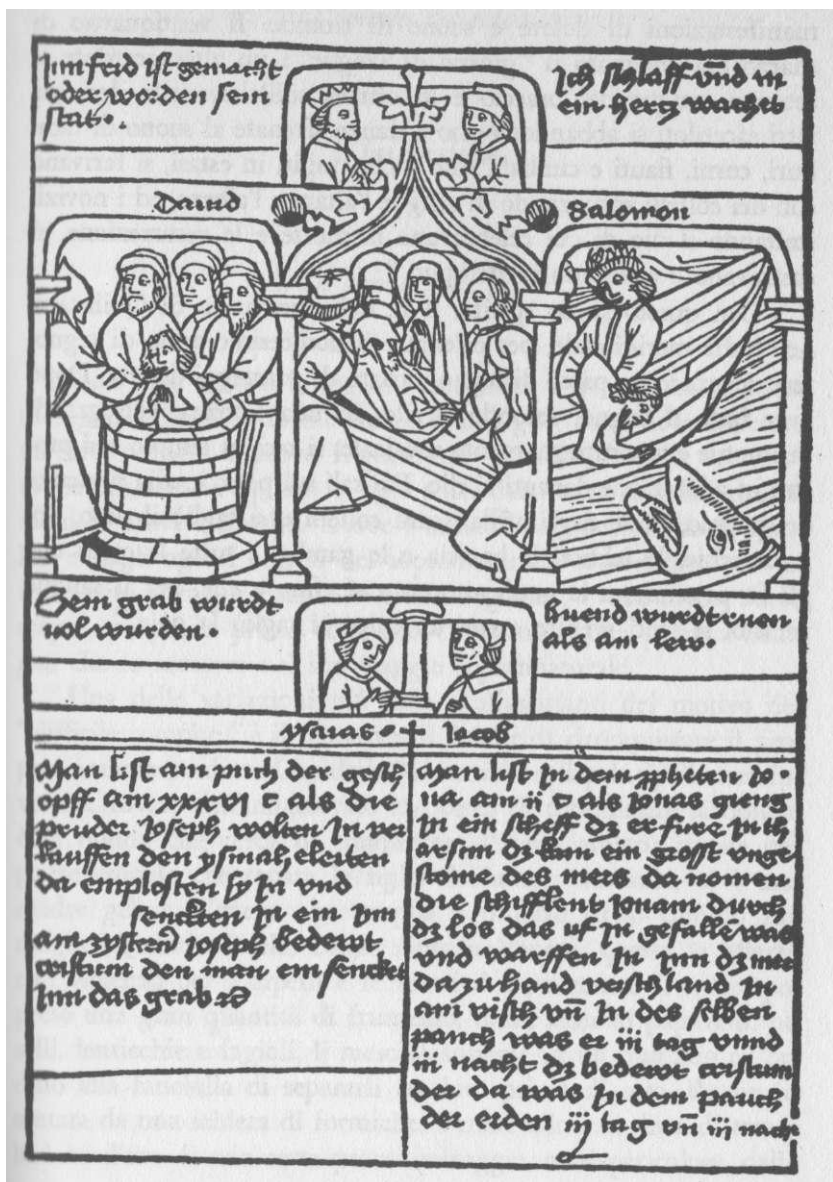 Im frid ist gemacht
oder worden sein
stat.
Ich schlaff vnd m
ein hertz wachet
David
Salomon
Sein grab wurdt
vol wurden.
huend wurdt ruen
als am lew.
ysaias
Jacob
Man list am puch der gesch
opff am xxxvi c als die
pruder Joseph wolten In ver
kauffen den ysmaheleiten
da emplosten sy In vnd
senckten In ein
am zystern Joseph bedewt
cristum den man ein senckt
Inn das grab
Man list In dem ppheten Jo
na am ii c als Jonas gieng
In ein scheff dz er fure In th
arsim dz kam ein gross vnge
stome des mers da nomen
die schifflent Jonam durch
dz los das uf In gefallē was
vnd warffen In Inn dz mer
da zuhand verschland In
am visch vn̄ In des selben
pauch was er iii tag vnnd
iii nacht dz bedewt cristum
der da was In dem pauch
der erden iij tag vn̄ iij nach